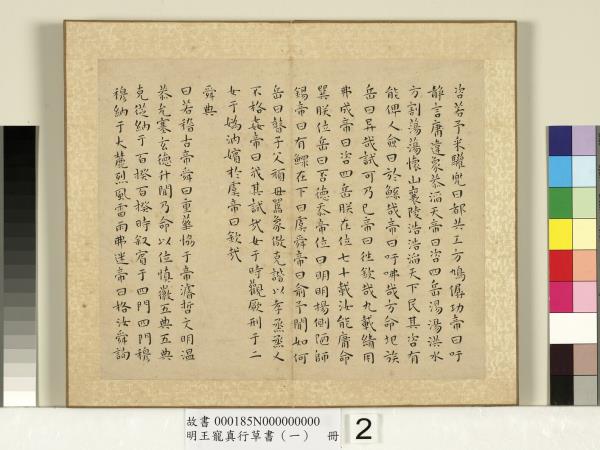 咨若予采驩兜曰都共工方鳩僝功帝曰吁
靜言庸違象恭滔天帝曰咨四岳湯湯洪水
方割蕩蕩懷山襄陵浩浩滔天下民其咨有
能俾乂僉曰於鯀哉帝曰吁咈哉方命圮族
岳曰异哉試可乃已帝曰往欽哉九載績用
弗成帝曰咨四岳朕在位七十載汝能庸命
巽朕位岳曰否德忝帝位曰明明揚側陋師
錫帝曰有鰥在下曰虞舜帝曰俞予聞如何
岳曰瞽子父頑母嚚象傲克諧以孝烝烝乂
不格姦帝曰我其試哉女于時觀厥刑于二
女于媯汭嬪于虞帝曰欽哉
舜典
曰若稽古帝舜曰重華協于帝濬哲文明溫
恭允塞玄德升聞乃命以位慎徽五典五典
克從納于百揆百揆時敘賓于四門四門穆
穆納于大麓烈風雷雨弗迷帝曰格汝舜詢
故書 000185N000000000
明王寵真行草書（一） 冊
2